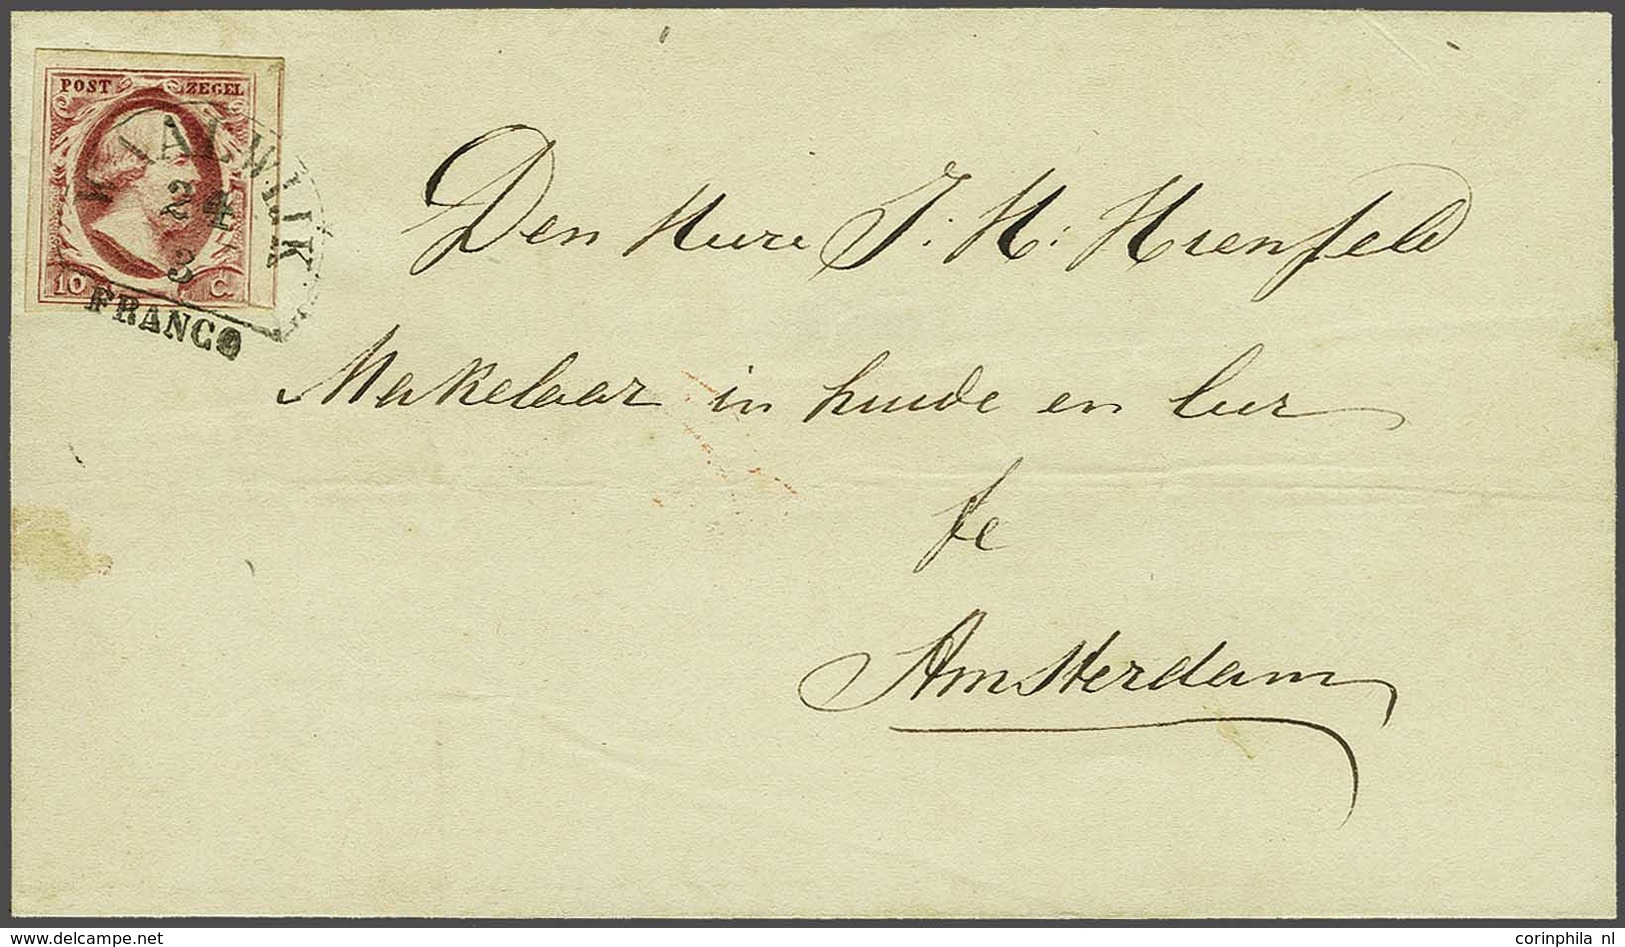 POST ZEGEL
WAALWIJK
10 C.
FRANCO
Den Heere J. H. Hienfeld
Makelaar in huide en leer
te
Amsterdam
www.delcampe.net
corinphila nl